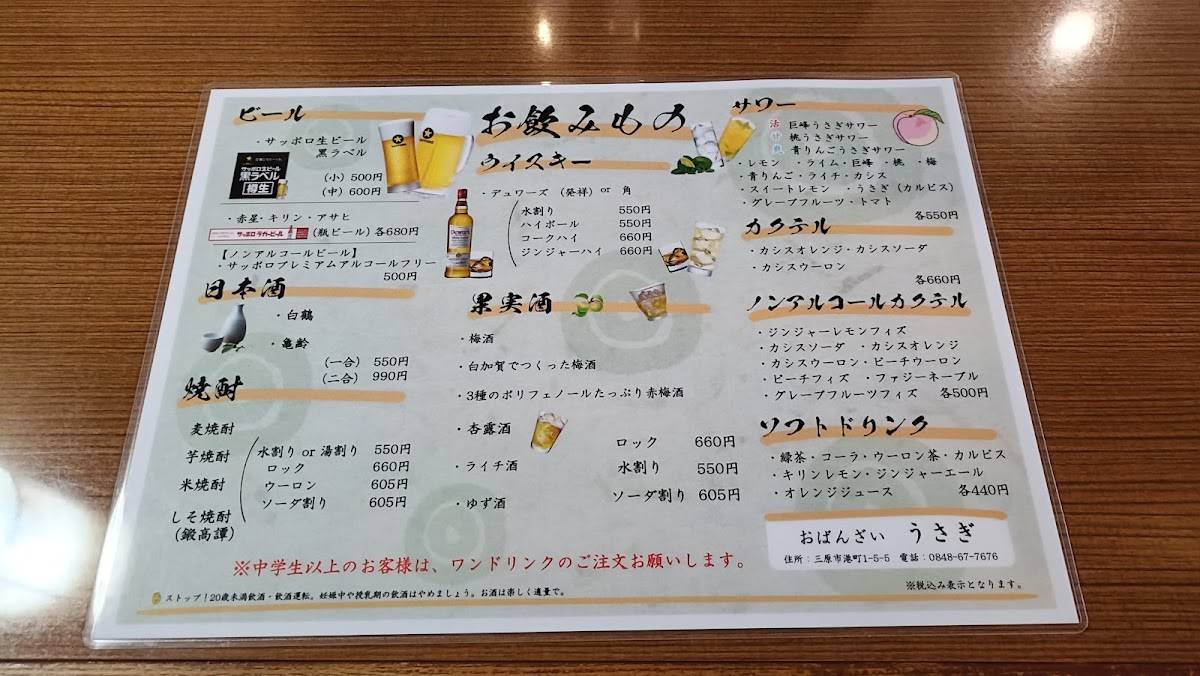 お飲みもの
ビール
・サッポロ生ビール
黒ラベル
サッポロ生ビール
黒ラベル
[樽生]
(小) 500円
(中) 600円
・赤星・キリン・アサヒ
サッポロ ラガービール
(瓶ビール) 各680円
【ノンアルコールビール】
・サッポロプレミアムアルコールフリー
500円
日本酒
・白鶴
・亀齢
(一合) 550円
(二合) 990円
焼酎
麦焼酎
芋焼酎
米焼酎
しそ焼酎
(鍛高譚)
水割り or 湯割り 550円
ロック 660円
ウーロン 605円
ソーダ割り 605円
ウイスキー
・デュワーズ (発祥) or 角
水割り 550円
ハイボール 550円
コークハイ 660円
ジンジャーハイ 660円
果実酒
・梅酒
・白加賀でつくった梅酒
・3種のポリフェノールたっぷり赤梅酒
・杏露酒
・ライチ酒
・ゆず酒
ロック 660円
水割り 550円
ソーダ割り 605円
サワー
巨峰うさぎサワー
桃うさぎサワー
青りんごうさぎサワー
・レモン ・ライム・巨峰 ・桃 ・梅
・青りんご・ライチ・カシス
・スイートレモン ・うさぎ (カルピス)
・グレープフルーツ・トマト
各550円
カクテル
・カシスオレンジ・カシスソーダ
・カシスウーロン
各660円
ノンアルコールカクテル
・ジンジャーレモンフィズ
・カシスソーダ ・カシスオレンジ
・カシスウーロン・ピーチウーロン
・ピーチフィズ ・ファジーネーブル
・グレープフルーツフィズ 各500円
ソフトドリンク
・緑茶・コーラ・ウーロン茶・カルピス
・キリンレモン・ジンジャーエール
・オレンジジュース 各440円
おばんざい うさぎ
住所：三原市港町1-5-5 電話：0848-67-7676
※中学生以上のお客様は、ワンドリンクのご注文お願いします。
※税込み表示となります。
ストップ！20歳未満飲酒・飲酒運転。妊娠中や授乳期の飲酒はやめましょう。お酒は楽しく適量で。